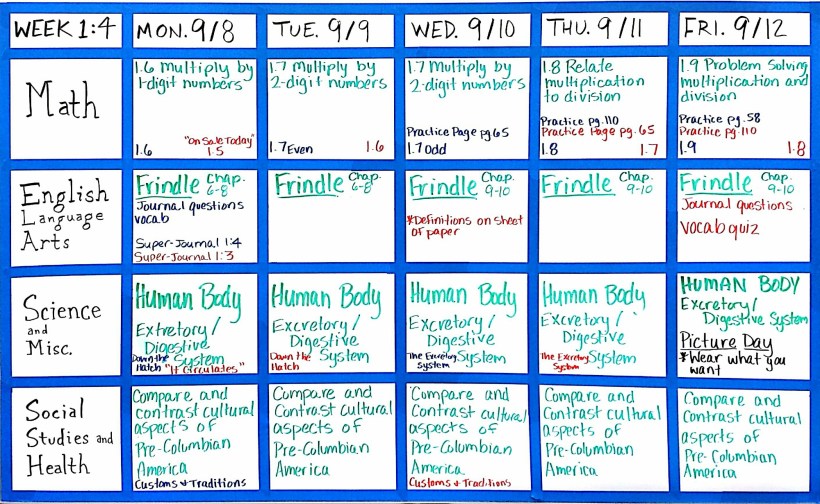 WEEK 1:4
MON. 9/8
TUE. 9/9
WED. 9/10
THU. 9/11
FRI. 9/12
Math
1.6 Multiply by
1-digit numbers
"On Sale Today"
1.6 1.5
1.7 Multiply by
2-digit numbers
1.7 Even 1.6
1.7 Multiply by
2-digit numbers
Practice Page pg 65
1.7 Odd
1.8 Relate
multiplication
to division
Practice pg. 110
Practice Page pg. 65
1.8 1.7
1.9 Problem Solving
multiplication and
division
Practice pg. 58
Practice pg. 110
1.9 1.8
English
Language
Arts
Frindle Chap.
6-8
Journal questions
vocab
Super-Journal 1:4
Super-Journal 1:3
Frindle Chap.
6-8
Frindle Chap.
9-10
*Definitions on sheet
of paper
Frindle Chap.
9-10
Frindle Chap.
9-10
Journal questions
vocab quiz
Science
and
Misc.
Human Body
Extretory/
Digestive
System
Down the
Hatch "It Circulates"
Human Body
Excretory/
Digestive
System
Down the
Hatch
Human Body
Excretory/
Digestive
System
The Excretory
System
Human Body
Excretory/
Digestive
System
The Excretory
System
HUMAN BODY
Excretory/
Digestive System
Picture Day
*Wear what you
want
Social
Studies and
Health
Compare and
contrast cultural
aspects of
Pre-Columbian
America
Customs & Traditions
Compare and
Contrast cultural
aspects of
Pre-Columbian
America
Compare and
Contrast cultural
aspects of
Pre-Columbian
America
Customs & Traditions
Compare and
Contrast cultural
aspects of
Pre-Columbian
America
Compare and
Contrast cultural
aspects of
Pre-Columbian
America